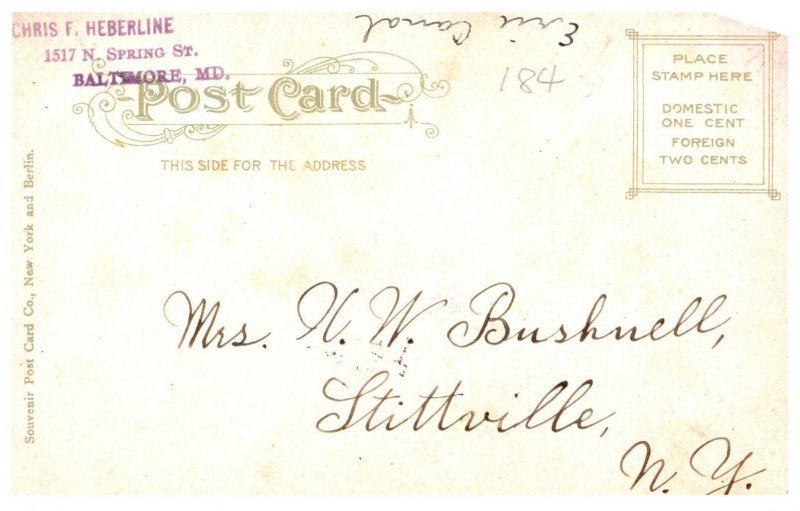 CHRIS F. HEBERLINE
1517 N. SPRING ST.
BALTIMORE, MD.
Erie Canal
184
Post Card
THIS SIDE FOR THE ADDRESS
PLACE
STAMP HERE
DOMESTIC
ONE CENT
FOREIGN
TWO CENTS
Souvenir Post Card Co., New York and Berlin.
Mrs. H. W. Bushnell,
Stittville,
N. Y.